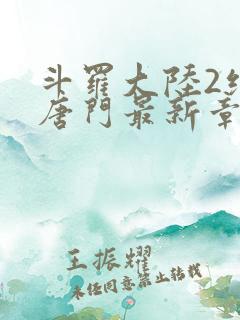 斗羅大陸2
唐門最新章
王振耀
未经同意禁止转载